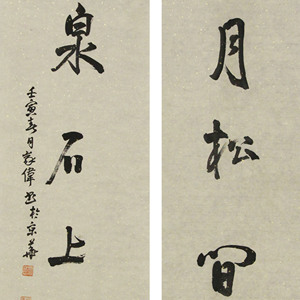 月松間
泉石上
壬寅春月家偉書於京華